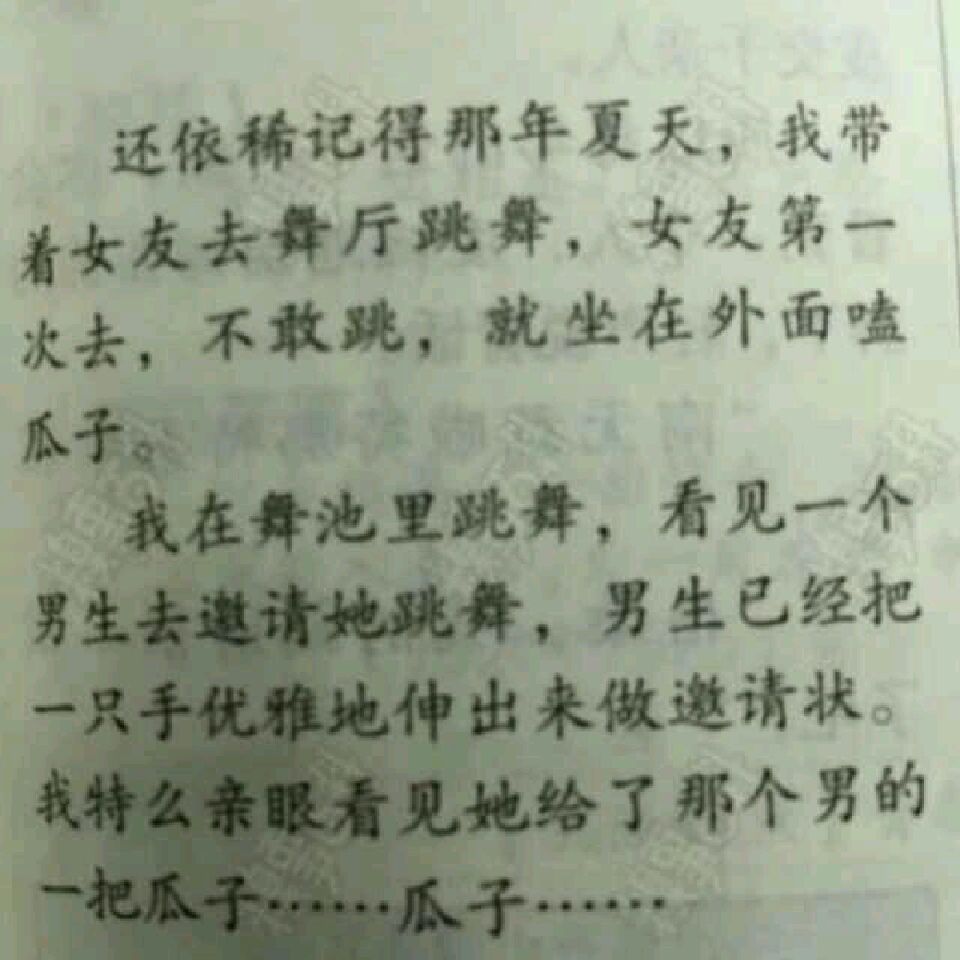 还依稀记得那年夏天，我带
着女友去舞厅跳舞，女友第一
次去，不敢跳，就坐在外面嗑
瓜子。
我在舞池里跳舞，看见一个
男生去邀请她跳舞，男生已经把
一只手优雅地伸出来做邀请状。
我特么亲眼看见她给了那个男的
一把瓜子……瓜子……